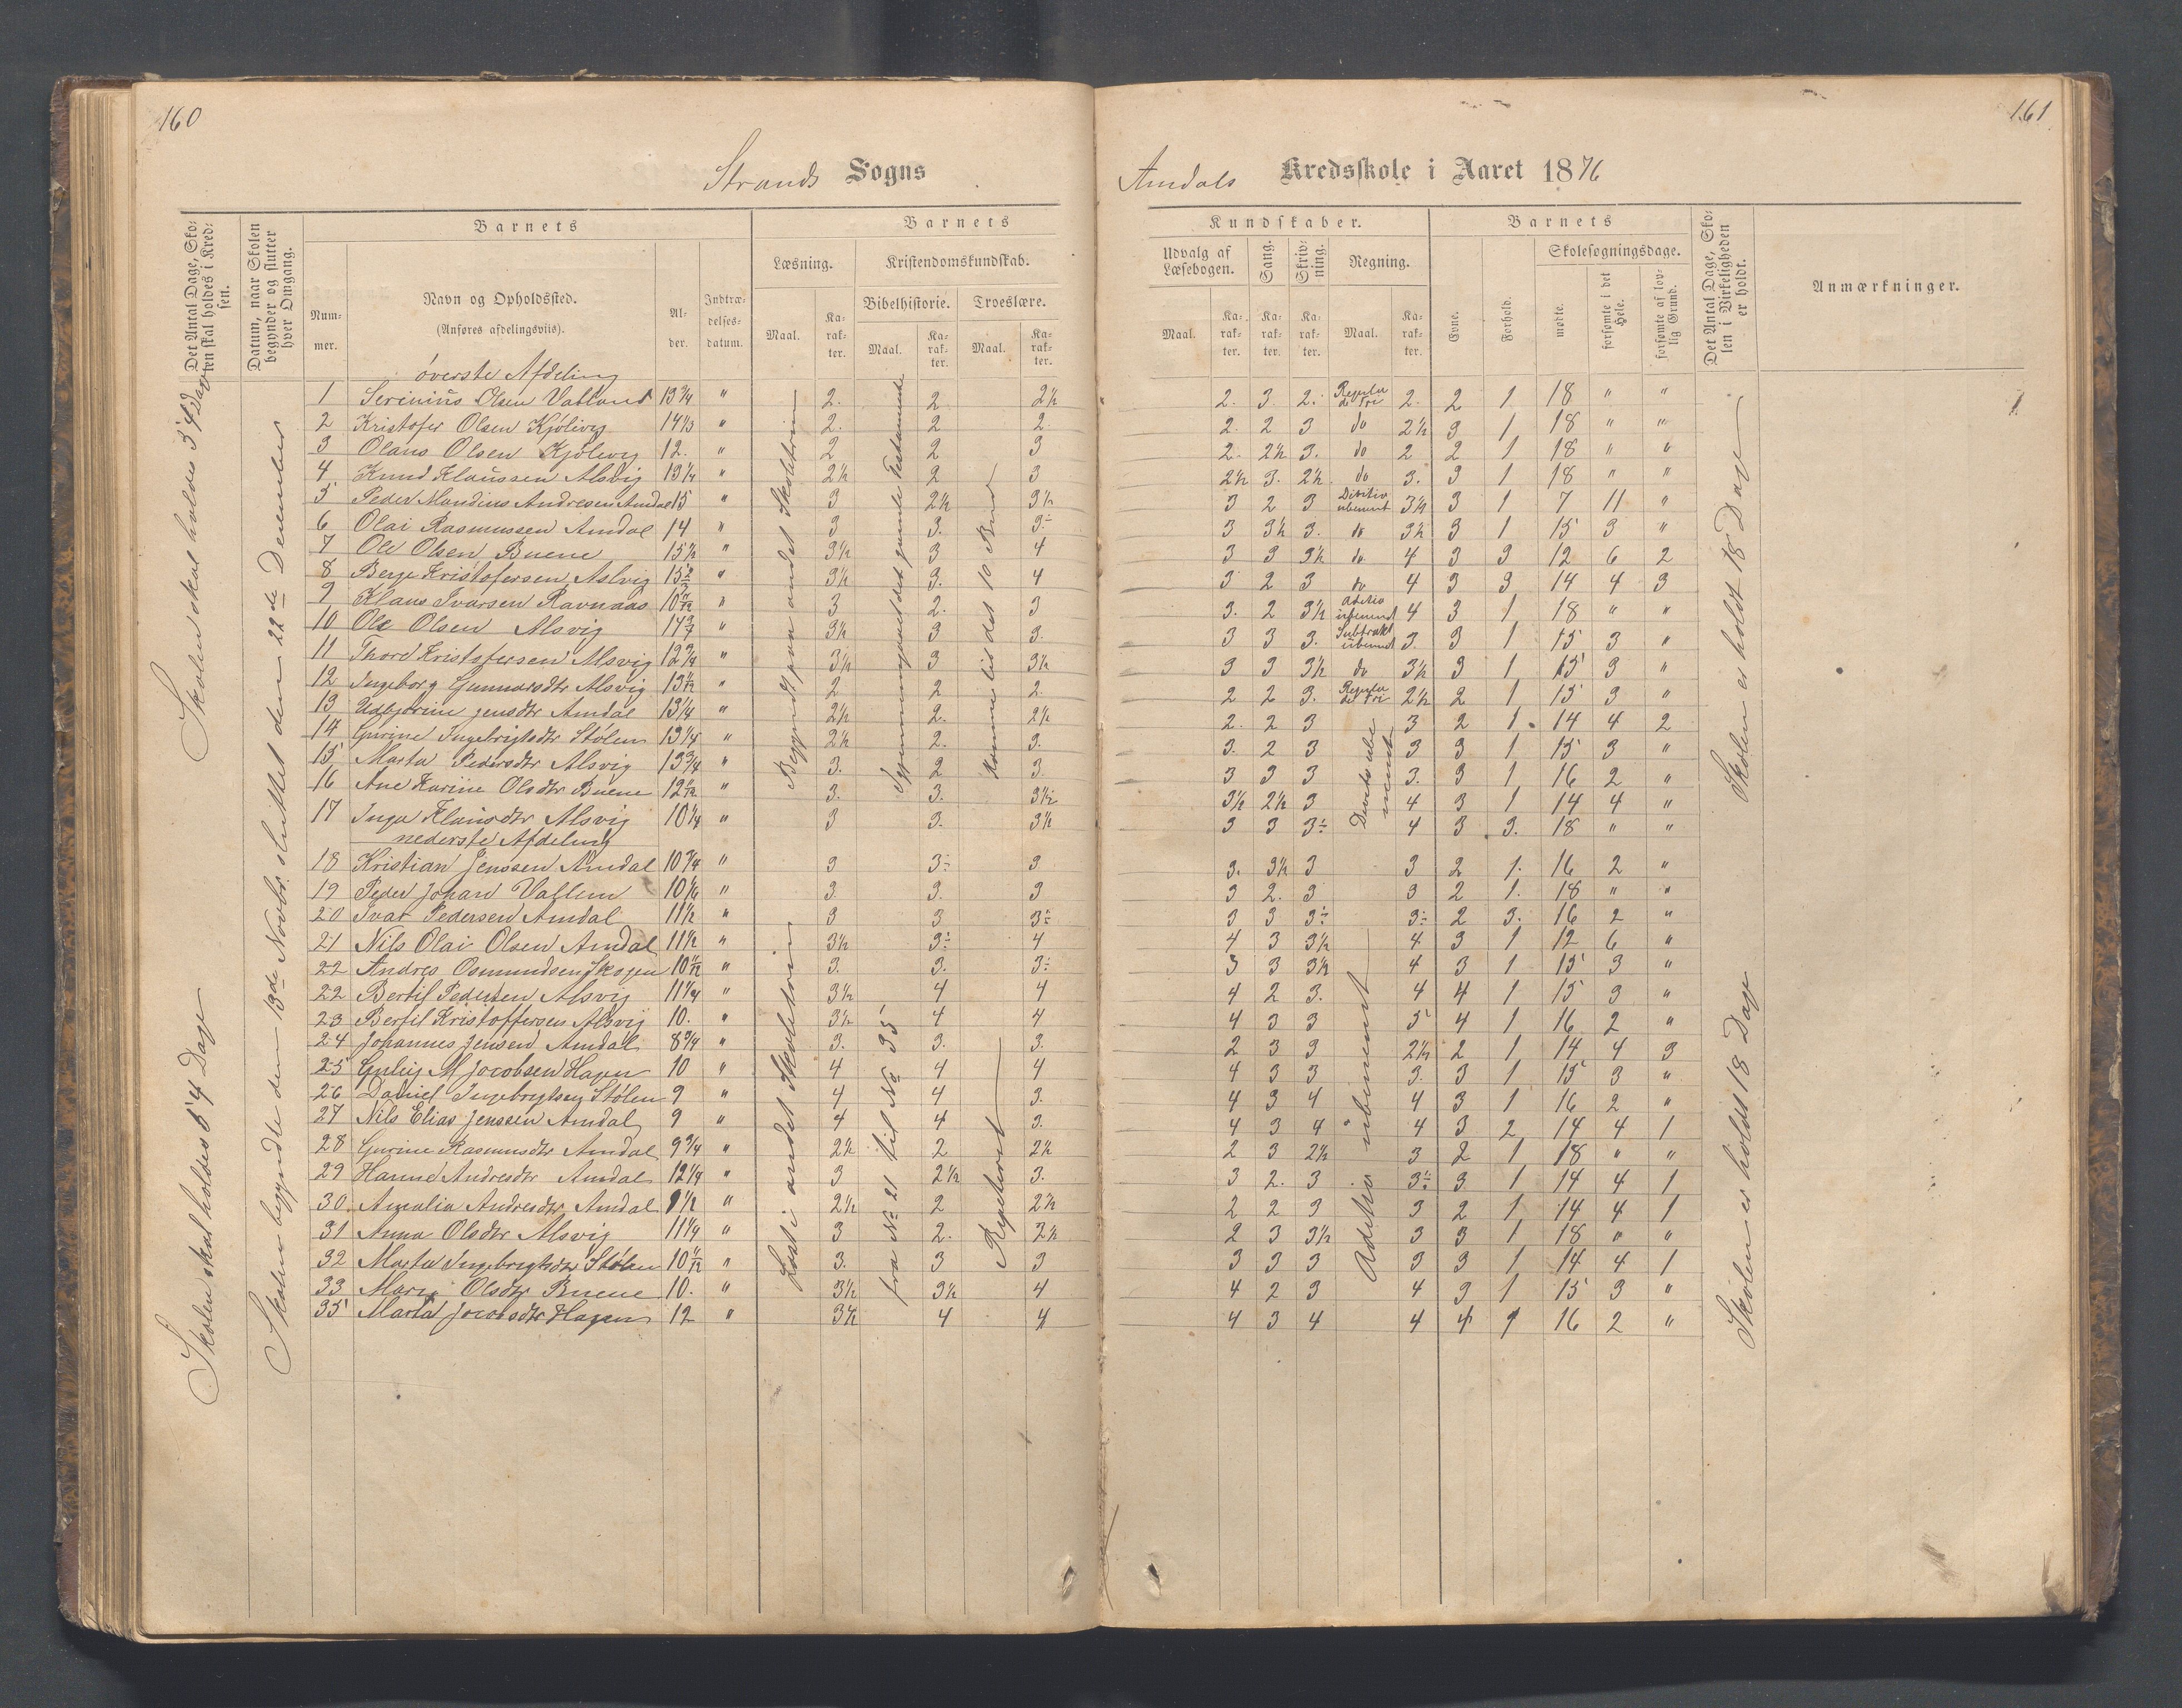 160
161
Strands Sogns
Amdals Kredsskole i Aaret 1876
Det Antal Dage, Skolen skal holdes i Kredsen.
Datum, naar Skolen begynder og slutter hver Omgang.
Barnets
Nummer.
Navn og Opholdssted.
(Anføres afdelingsviis).
Alder.
Indtrædelsesdatum.
Barnets
Læsning.
Kristendomskundskab.
Bibelhistorie.
Troeslære.
Maal.
Karakter.
Maal.
Karakter.
Maal.
Karakter.
Kundskaber.
Udvalg af Læsebogen.
Sang.
Skrivning.
Regning.
Maal.
Karakter.
Karakter.
Karakter.
Maal.
Karakter.
Barnets
Evne.
Forhold.
Skolesøgningsdage.
mødte.
forsømte i det Hele.
forsømte af lovlig Grund.
Det Antal Dage, Skolen i Virkeligheden er holdt.
Anmærkninger.
Skolen skal holdes 54 Dage
Skolen begyndte den 13de Novbr. sluttet den 22de December
Begyndt paa andet Skoletrin
Skolen er holdt 18 Dage
øverste Afdeling
1 Serenius Olsen Vatland 13 3/4 " 2. 2 2½ 2. 3. 2. Regula de tri 2. 2 1 18 " "
2 Kristofer Olsen Kjølevig 14 1/3 " 2. 2 2. 2. 2 3 do 2½ 3 1 18 " "
3 Olaus Olsen Kjølevig 12. " 2 2 3 2. 2½ 3. do 2 2 1 18 " "
4 Knud Klaussen Alsvig 13 1/4 " 2½ 2 3 2½ 3. 2½ do 3. 3 1 18 " "
5 Peder Mandius Andresen Amdal 15 " 3 2½ 3½ 3 2 3 3½ 3 1 7 11 "
6 Olai Rasmussen Amdal 14 " 3 3. 3÷ 3 3½ 3. do 3½ 3 1 15 3 "
7 Ole Olsen Buene 15½ " 3½ 3 4 3 3 3½ do 4 3 3 12 6 2
8 Berge Kristofersen Aslvig " 3½ 3. 4 3 2 3 do 4 3 3 14 4 3
9 Klaus Ivarsen Ravnaas " 3 2. 3 3. 2 3½ 4 3 1 18 " "
10 Ole Olsen Alsvig " 3½ 3 3. 3 3 3. 3. 3 1 15 3 "
11 Thore Kristofersen Alsvig 12 3/4 " 3½ 3 3½ 3 3 3½ do 3½ 3 1 15 3 "
12 Ingeborg Gunnarsdtr Alsvig " 2 2 2. 2 2 3. Regula de tri 2½ 2 1 15 3 "
13 Udbjørine Jensdtr Amdal 13 1/4 " 2½ 2. 2½ 2. 2 3 3 2 1. 14 4 2
14 Gurine Ingebrigtsdtr Stølen 13 1/4 " 2½ 2. 3. 3. 2 3 3 3 1 15 3 "
15 Marta Pedersdtr Alsvig 13 3/4 " 3. 2 3. 3 3 3 3. 3 1 16 2 "
16 Ane Karine Olsdtr Buene " 3. 3. 3½ 3½ 2½ 3 4 3 1 14 4 "
17 Inga Klausdtr Alsvig 10 1/4 " 3 3. 3½ 3 3 3÷ 4 3 3. 18 " "
nederste Afdeling
18 Kristian Jenssen Amdal 10 3/4 " 3 3÷ 3 3. 3½ 3 3 2 1. 16 2 "
19 Peder Johan Vatlun 10 1/6 " 3 3. 3 3 2. 3 3 2 1. 18 " "
20 Ivar Pedersen Amdal 11½ " 3 3 3÷ 3 3 3÷ 3÷ 2 3. 16 2 "
21 Nils Olai Olsen Amdal 11½ " 3½ 3÷ 4 4 3 3½ 4 3 1 12 6 "
22 Andres Osmundsen Skogen 10 11/12 " 3. 3. 3÷ 3 3 3½ 4 3 1 15 3 "
22 Bertil Pedersen Alsvig 11 1/4 " 3½ 4 4 4 2 3. 4 4 1 15 3 "
23 Bertil Kristoffersen Alsvig 10. " 3½ 4 4 4 3 3 5 4 1 16 2 "
24 Johannes Jensen Amdal 8 3/4 " 3. 3. 3. 2 3 3 2½ 2 1 14 4 3
25 M Jocobsen Hagen 10 " 4 4 4 4 3 3 3. 3 1 15 3 "
26 Daniel Ingebrigtsen Stølen 9 " 4 4 3. 4 3 4 4 3 1 16 2 "
27 Nils Elias Jenssen Amdal 9 " 4 4 3. 4 3 4 4 3 2 14 4 1
28 Gurine Rasmusdtr Amdal 9 3/4 " 2½ 2 2½ 2 3 2½ 3 2 1 18 " "
29 Hanne Andresdtr Amdal 12 1/4 " 3 2½ 3. 3 2. 3 3÷ 3 1 14 4 1
30 Amalia Andresdtr Amdal " 2½ 2 2½ 2 2 3 3 2 1 14 4 1
31 Anna Olsdtr Alsvig 11 1/4 " 3 2. 2½ 2 3 3½ 3 3 1 18 " "
32 Marta Ingebrigtsdtr Stølen 10 11/12 " 3. 3 3 3 3 3 3 3 1 14 4 1
33 Mari Olsdtr Buene 10. " 3½ 3½ 4 4 2 3 4 3 1 15 3 "
35 Marta Jocobsdtr Hagen 12 " 3½ 4 4 4 3 4 4 4 1 16 2 "
Skolen skal holdes 54 Dage
Læst i andet Skoletrin
fra No 21 til No 35
Repeteret
Skolen er holdt 18 Dage